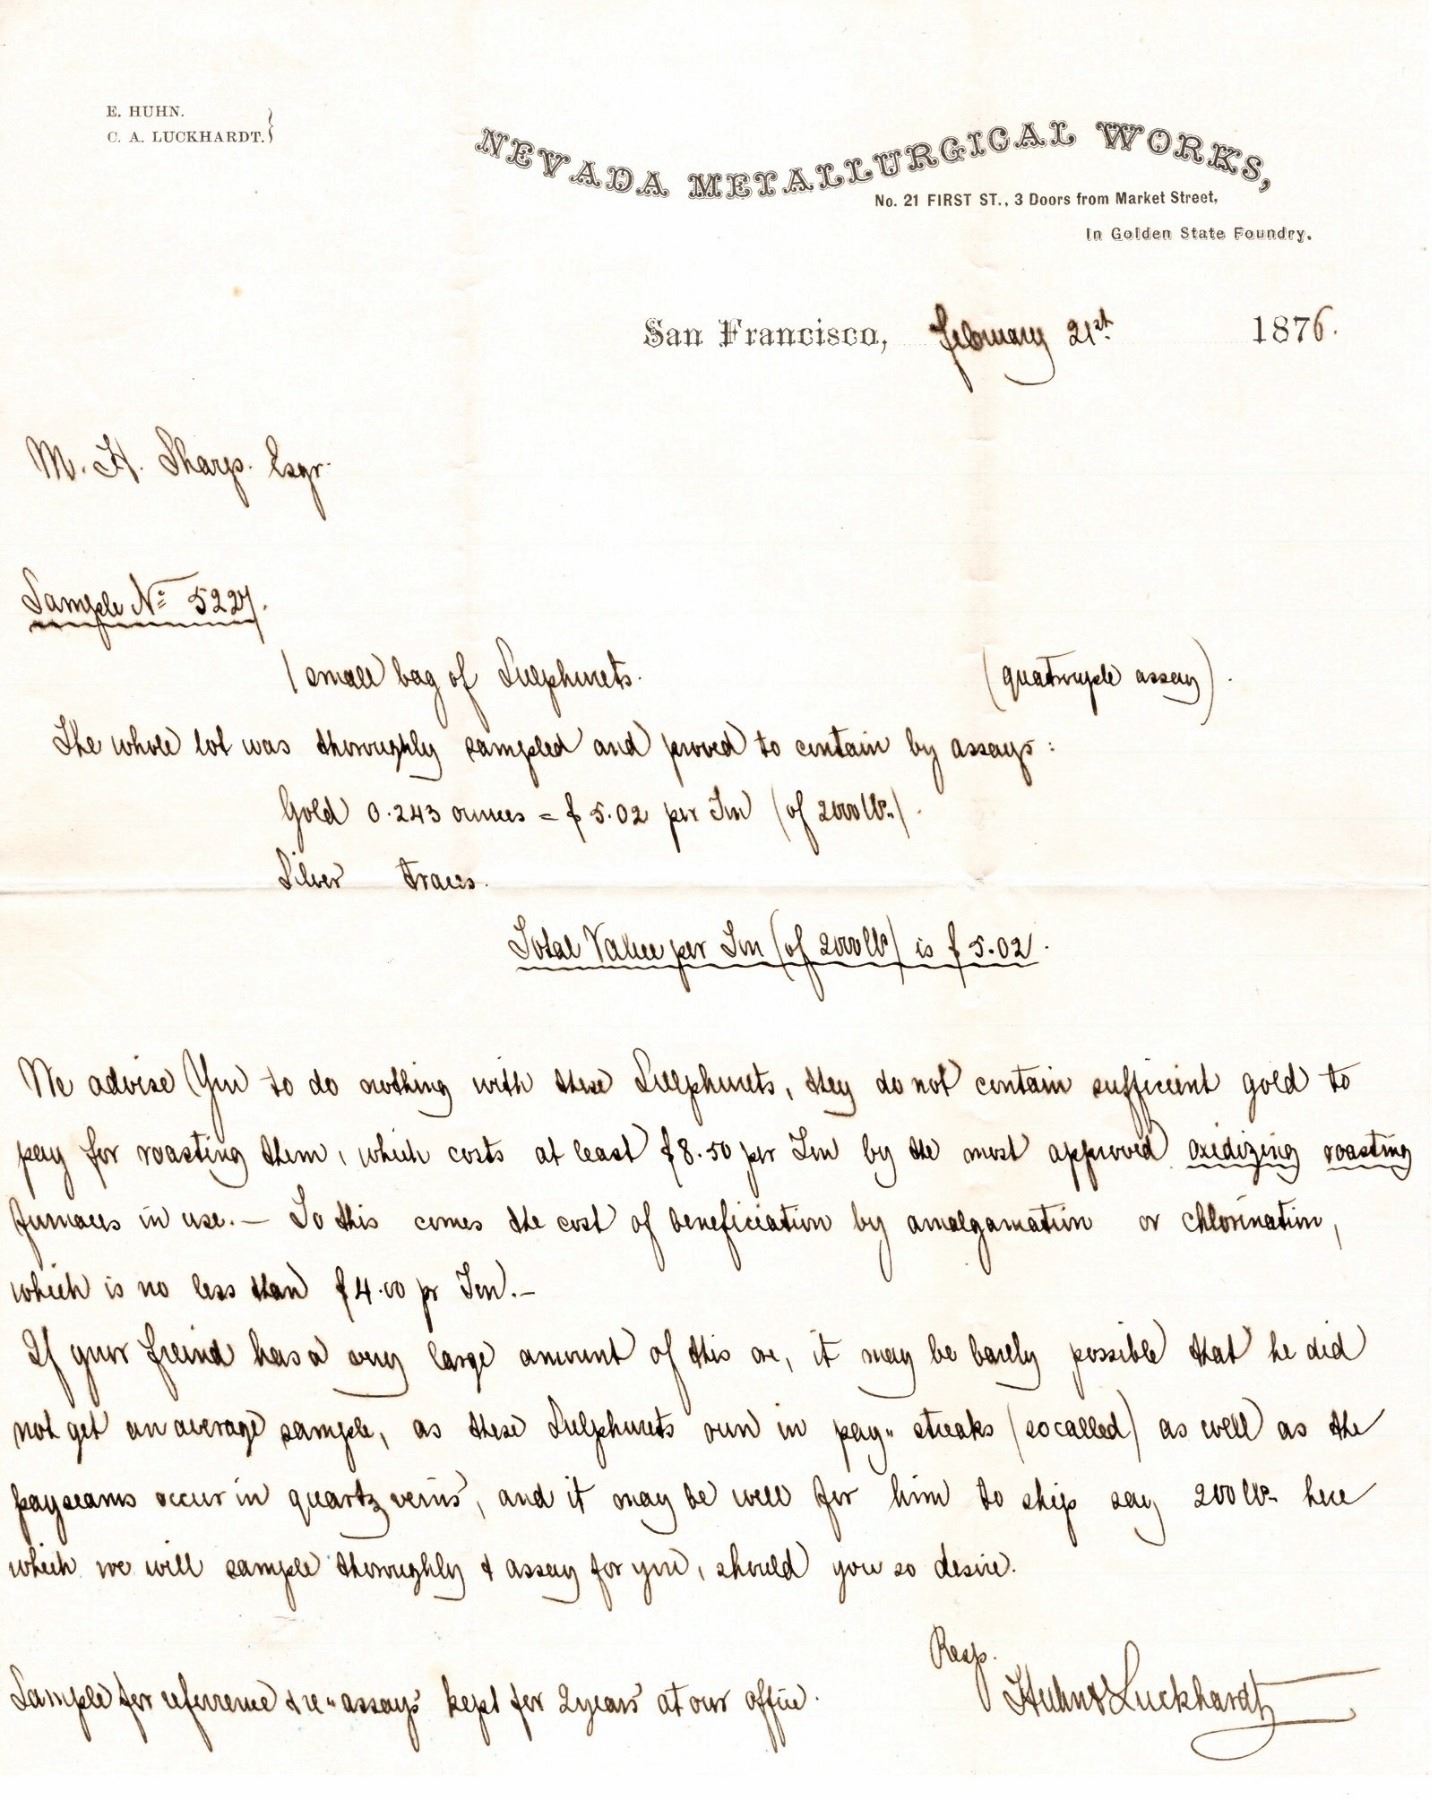 E. HUHN.
C. A. LUCKHARDT.
NEVADA METALLURGICAL WORKS,
No. 21 FIRST ST., 3 Doors from Market Street,
In Golden State Foundry.
San Francisco, February 21st 1876.
M. H. Sharp. Esqr.
Sample No. 5227.
1 small bag of Sulphurets. (quatruple assay).
The whole lot was thoroughly sampled and proved to contain by assays:
Gold 0.243 ounces = $ 5.02 per Ton (of 2000 lbs.).
Silver traces.
Total Value per Ton (of 2000 lbs) is $ 5.02.
We advise You to do nothing with these Sulphurets, they do not contain sufficient gold to
pay for roasting them, which costs at least $8.50 per Ton by the most approved oxidizing roasting
furnaces in use.— To this comes the cost of beneficiation by amalgamation or chlorination,
which is no less than $4.00 pr Ton.—
If your freind has a very large amount of this ore, it may be barely possible that he did
not get an average sample, as these Sulphurets run in pay" streaks (so called) as well as the
payseams occur in quartz veins, and it may be well for him to ship say 200 lbs. here
which we will sample thoroughly & assay for you, should you so desire.
Resp.
Sample for referrence & re"assays kept for 2 years at our office.
Huhn & Luckhardt